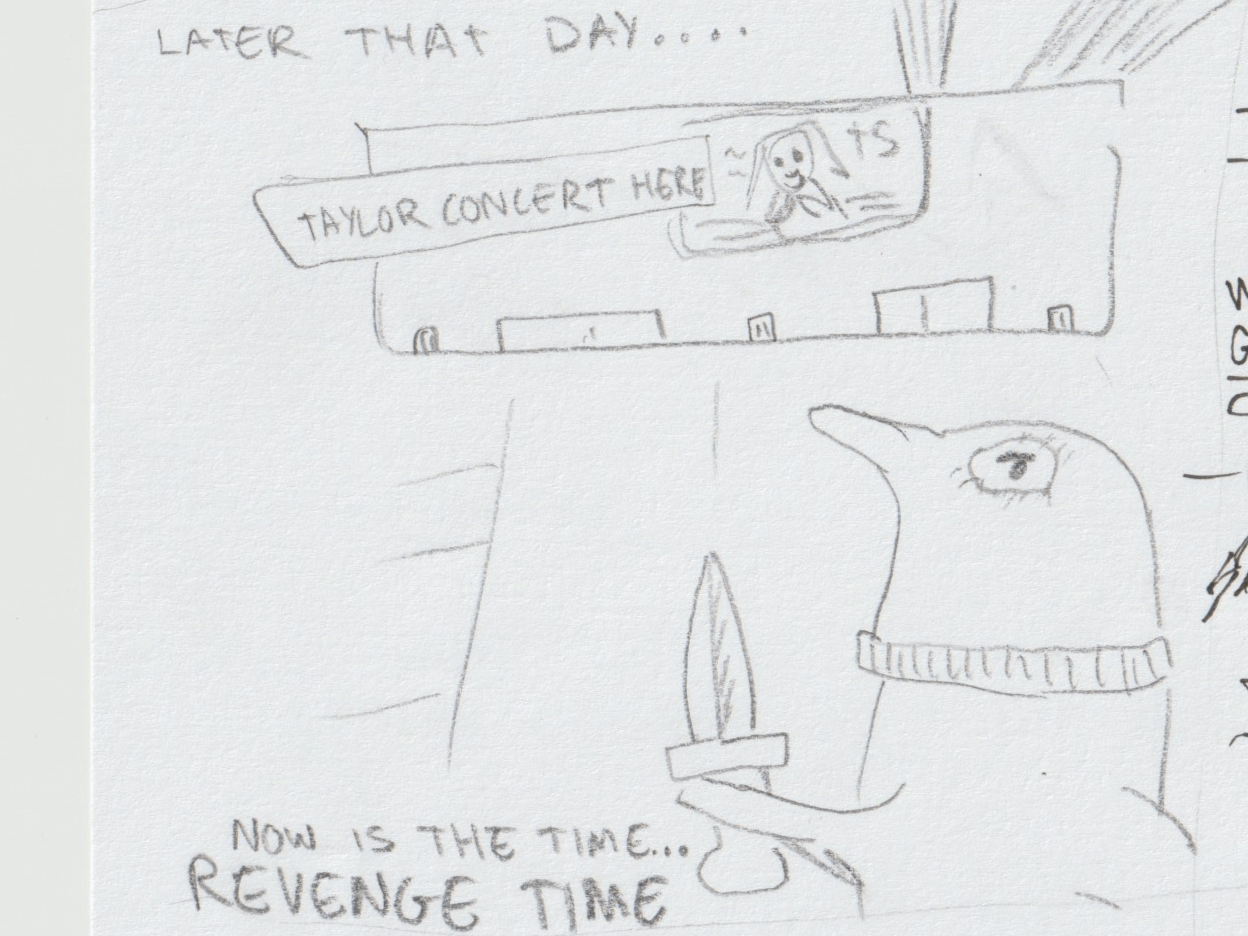 LATER THAT DAY....
TAYLOR CONCERT HERE
TS
NOW IS THE TIME...
REVENGE TIME